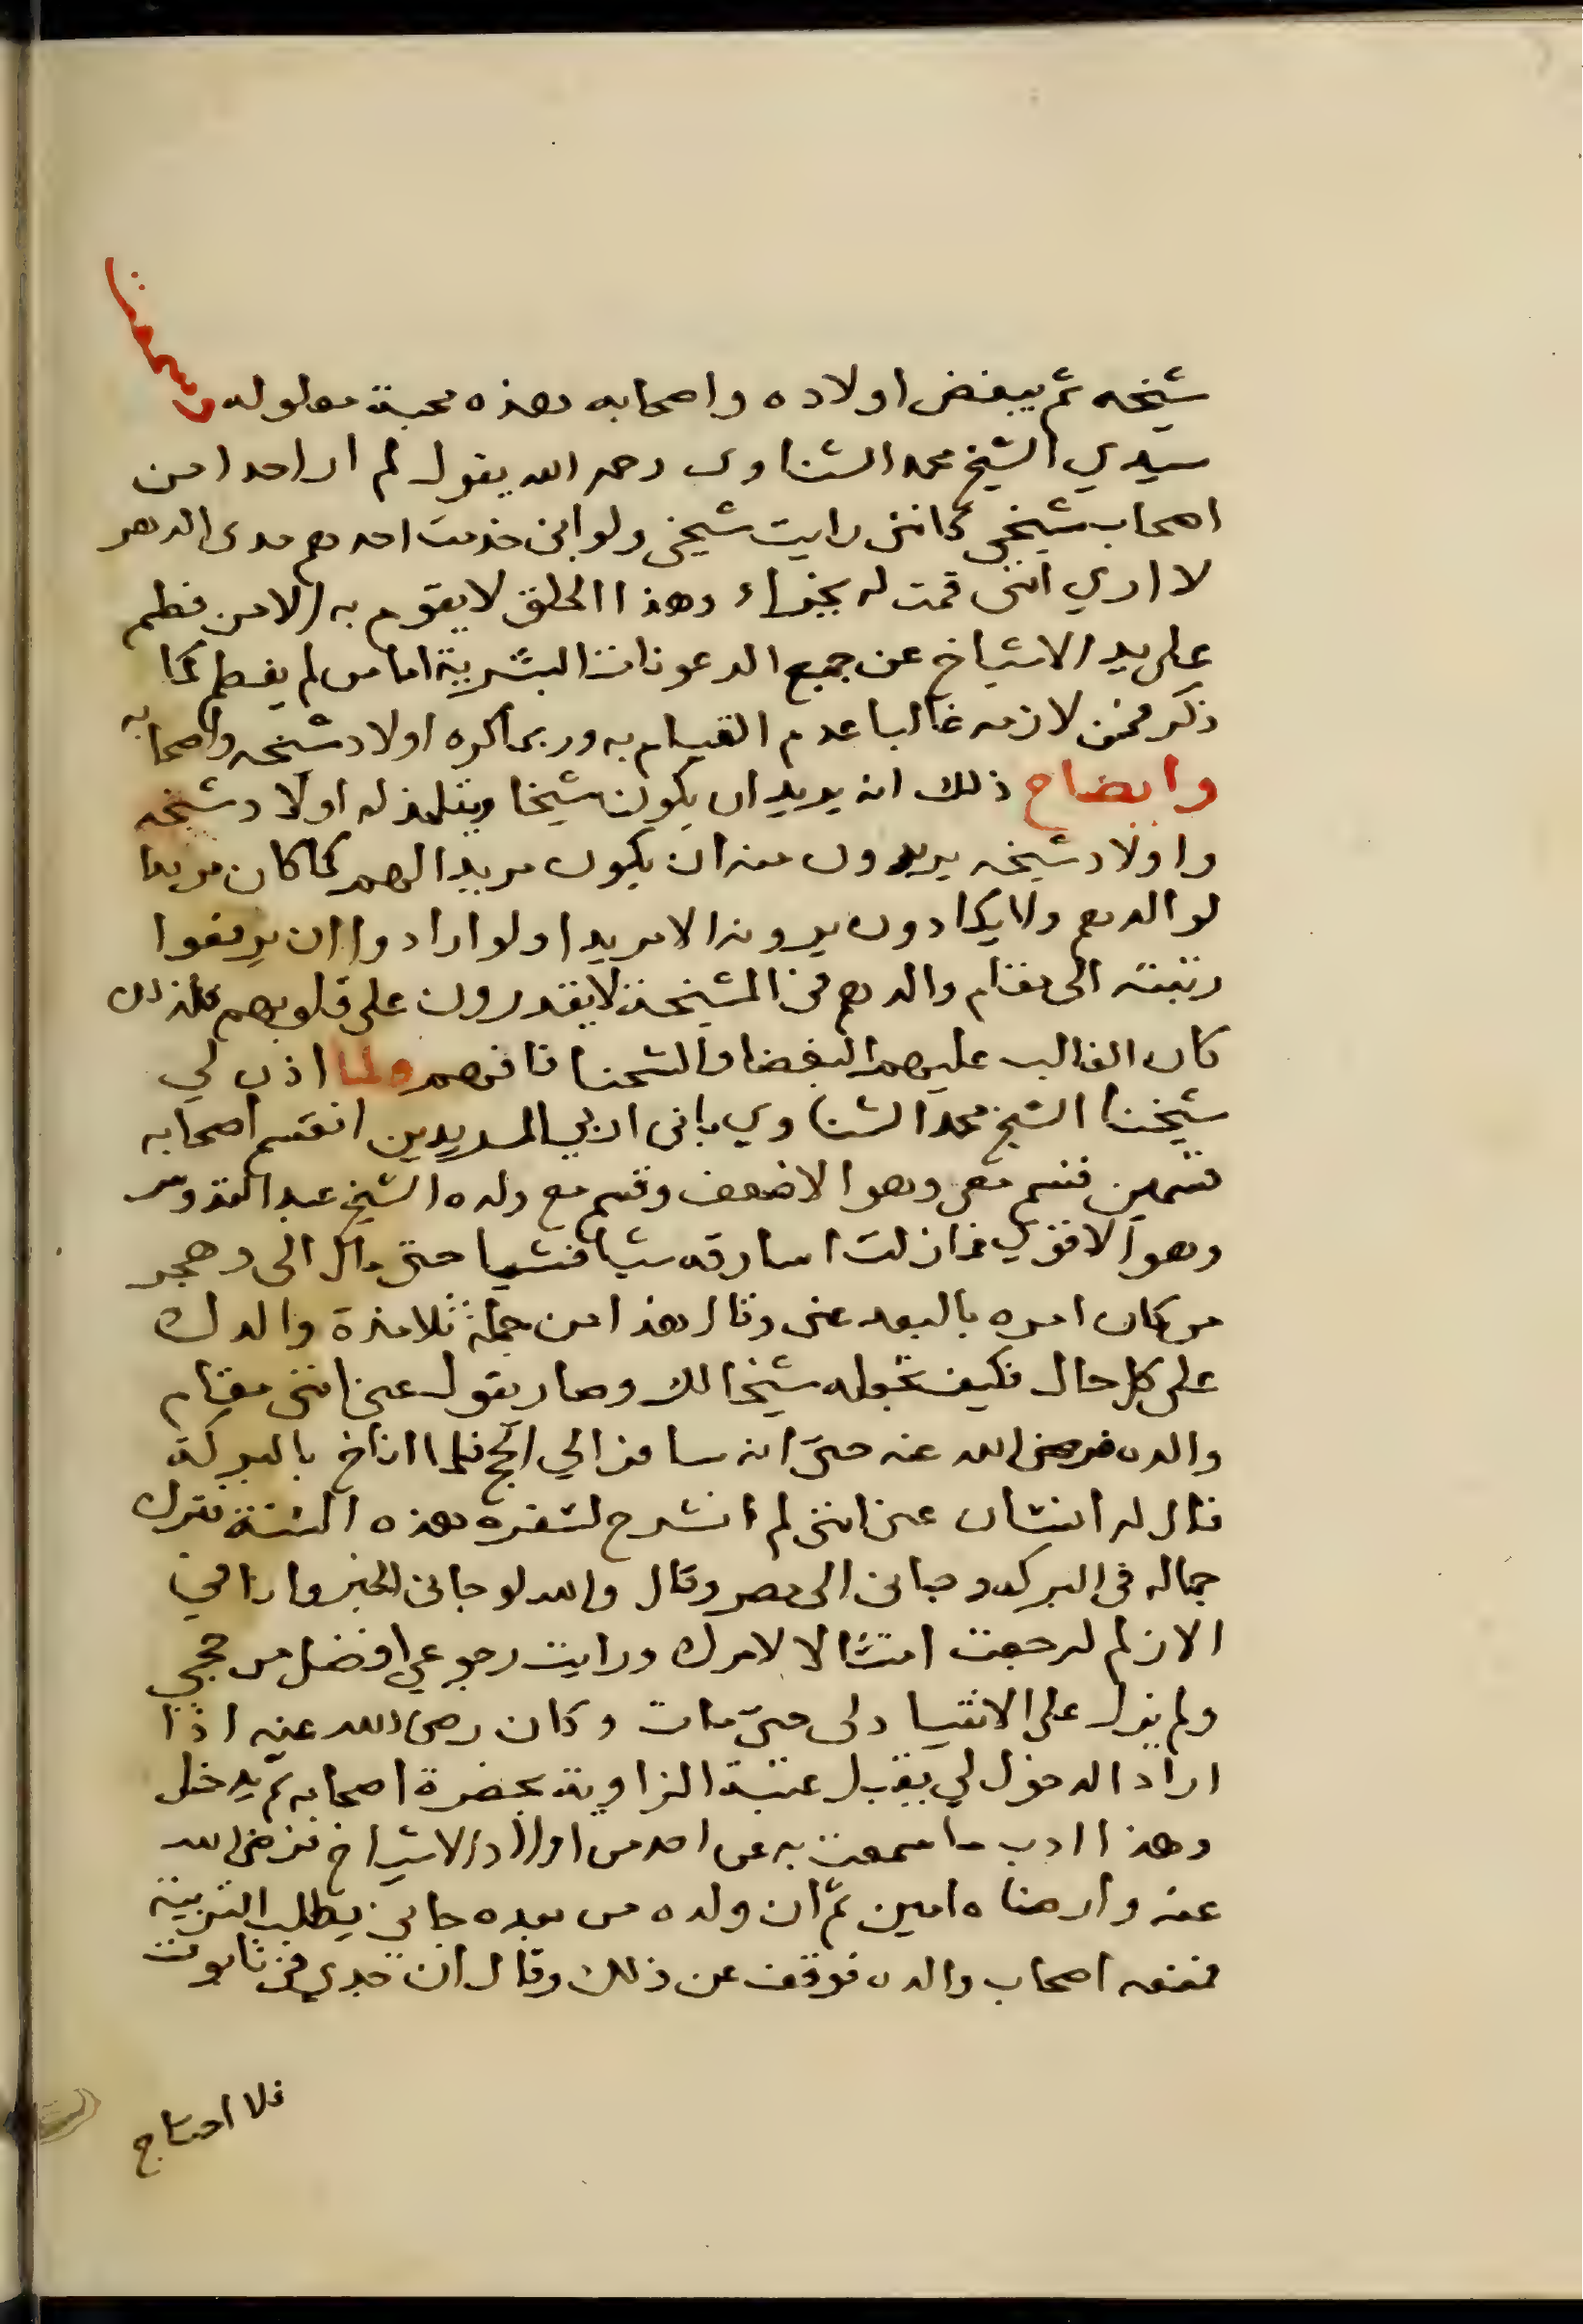 شيخه ثم يبغض اولاده واصحابه فهذه محبة معلولة وسمعت
سيدي الشيخ محمد الشناوى رحمه الله يقول لم ار احدا من
اصحاب شيخى كانني رايت شيخى ولو انى خدمت احدهم مدى الدهر
لا ارى اننى قمت له بجزاء وهذا الخلق لا يقوم به الا من فطم
على يد الاشياخ عن جميع الرعونات البشرية اما من لم يفطم كما
ذكر فمن لازمه غالبا عدم القيام به وربما كره اولاد شيخه واصحابه
وايضاح ذلك انه يريد ان يكون شيخا ويتلمذ له اولاد شيخه
واولاد شيخه يريدون منه ان يكون مريدا لهم كما كان مريدا
لوالدهم ولا يكادون يرونه الا مريدا ولو ارادوا ان يرفعوا
رتبته الى مقام والدهم فى المشيخة لا يقدرون على قلوبهم فلذلك
كان الغالب عليهم البغضا والشحنا فافهم ولما اذن لي
شيخنا الشيخ محمد الشناوي بانى اربي المريدين انقسم اصحابه
قسمين قسم معى وهو الاضعف وقسم مع ولده الشيخ عبد القدوس
وهو الاقوي فما زلت اسارقه شيا فشيا حتى مال الى وهجر
من كان امره بالبعد عنى وقال هذا من جملة تلامذة والدك
على كل حال فكيف تجعله شيخا لك وصار يقول عنى اننى مقام
والده فرضى الله عنه حتى انه سافر الي الحج فلما اناخ بالبركة
قال له انسان عنى اننى لم انشرح لسفره هذه السنة فترك
جماله فى البركة وجانى الى مصر وقال والله لو جانى الخبر وانا في
الازلم لرجعت امتثالا لامرك ورايت رجوعي افضل من حجي
ولم يزل على الانقياد لى حتى مات وكان رضى الله عنه اذا
اراد الدخول لي يقبل عتبة الزاوية بحضرة اصحابه ثم يدخل
وهذا ادب ما سمعت به عن احد من اولاد الاشياخ فرضى الله
عنه وارضاه امين ثم ان ولده من بعده جانى يطلب التربية
فمنعه اصحاب والده فوقف عن ذلك وقال ان جدي فى تابوت
فلا احتاج